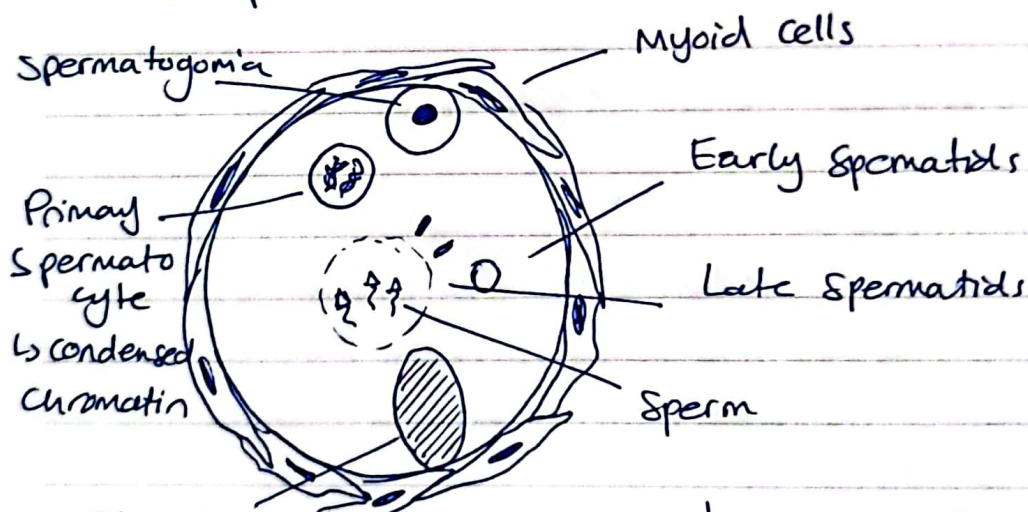 Spermatogonia
Myoid cells
Early Spematids
Primary
Spermato
cyte
↳ condensed
Chromatin
Late Spermatids
Sperm